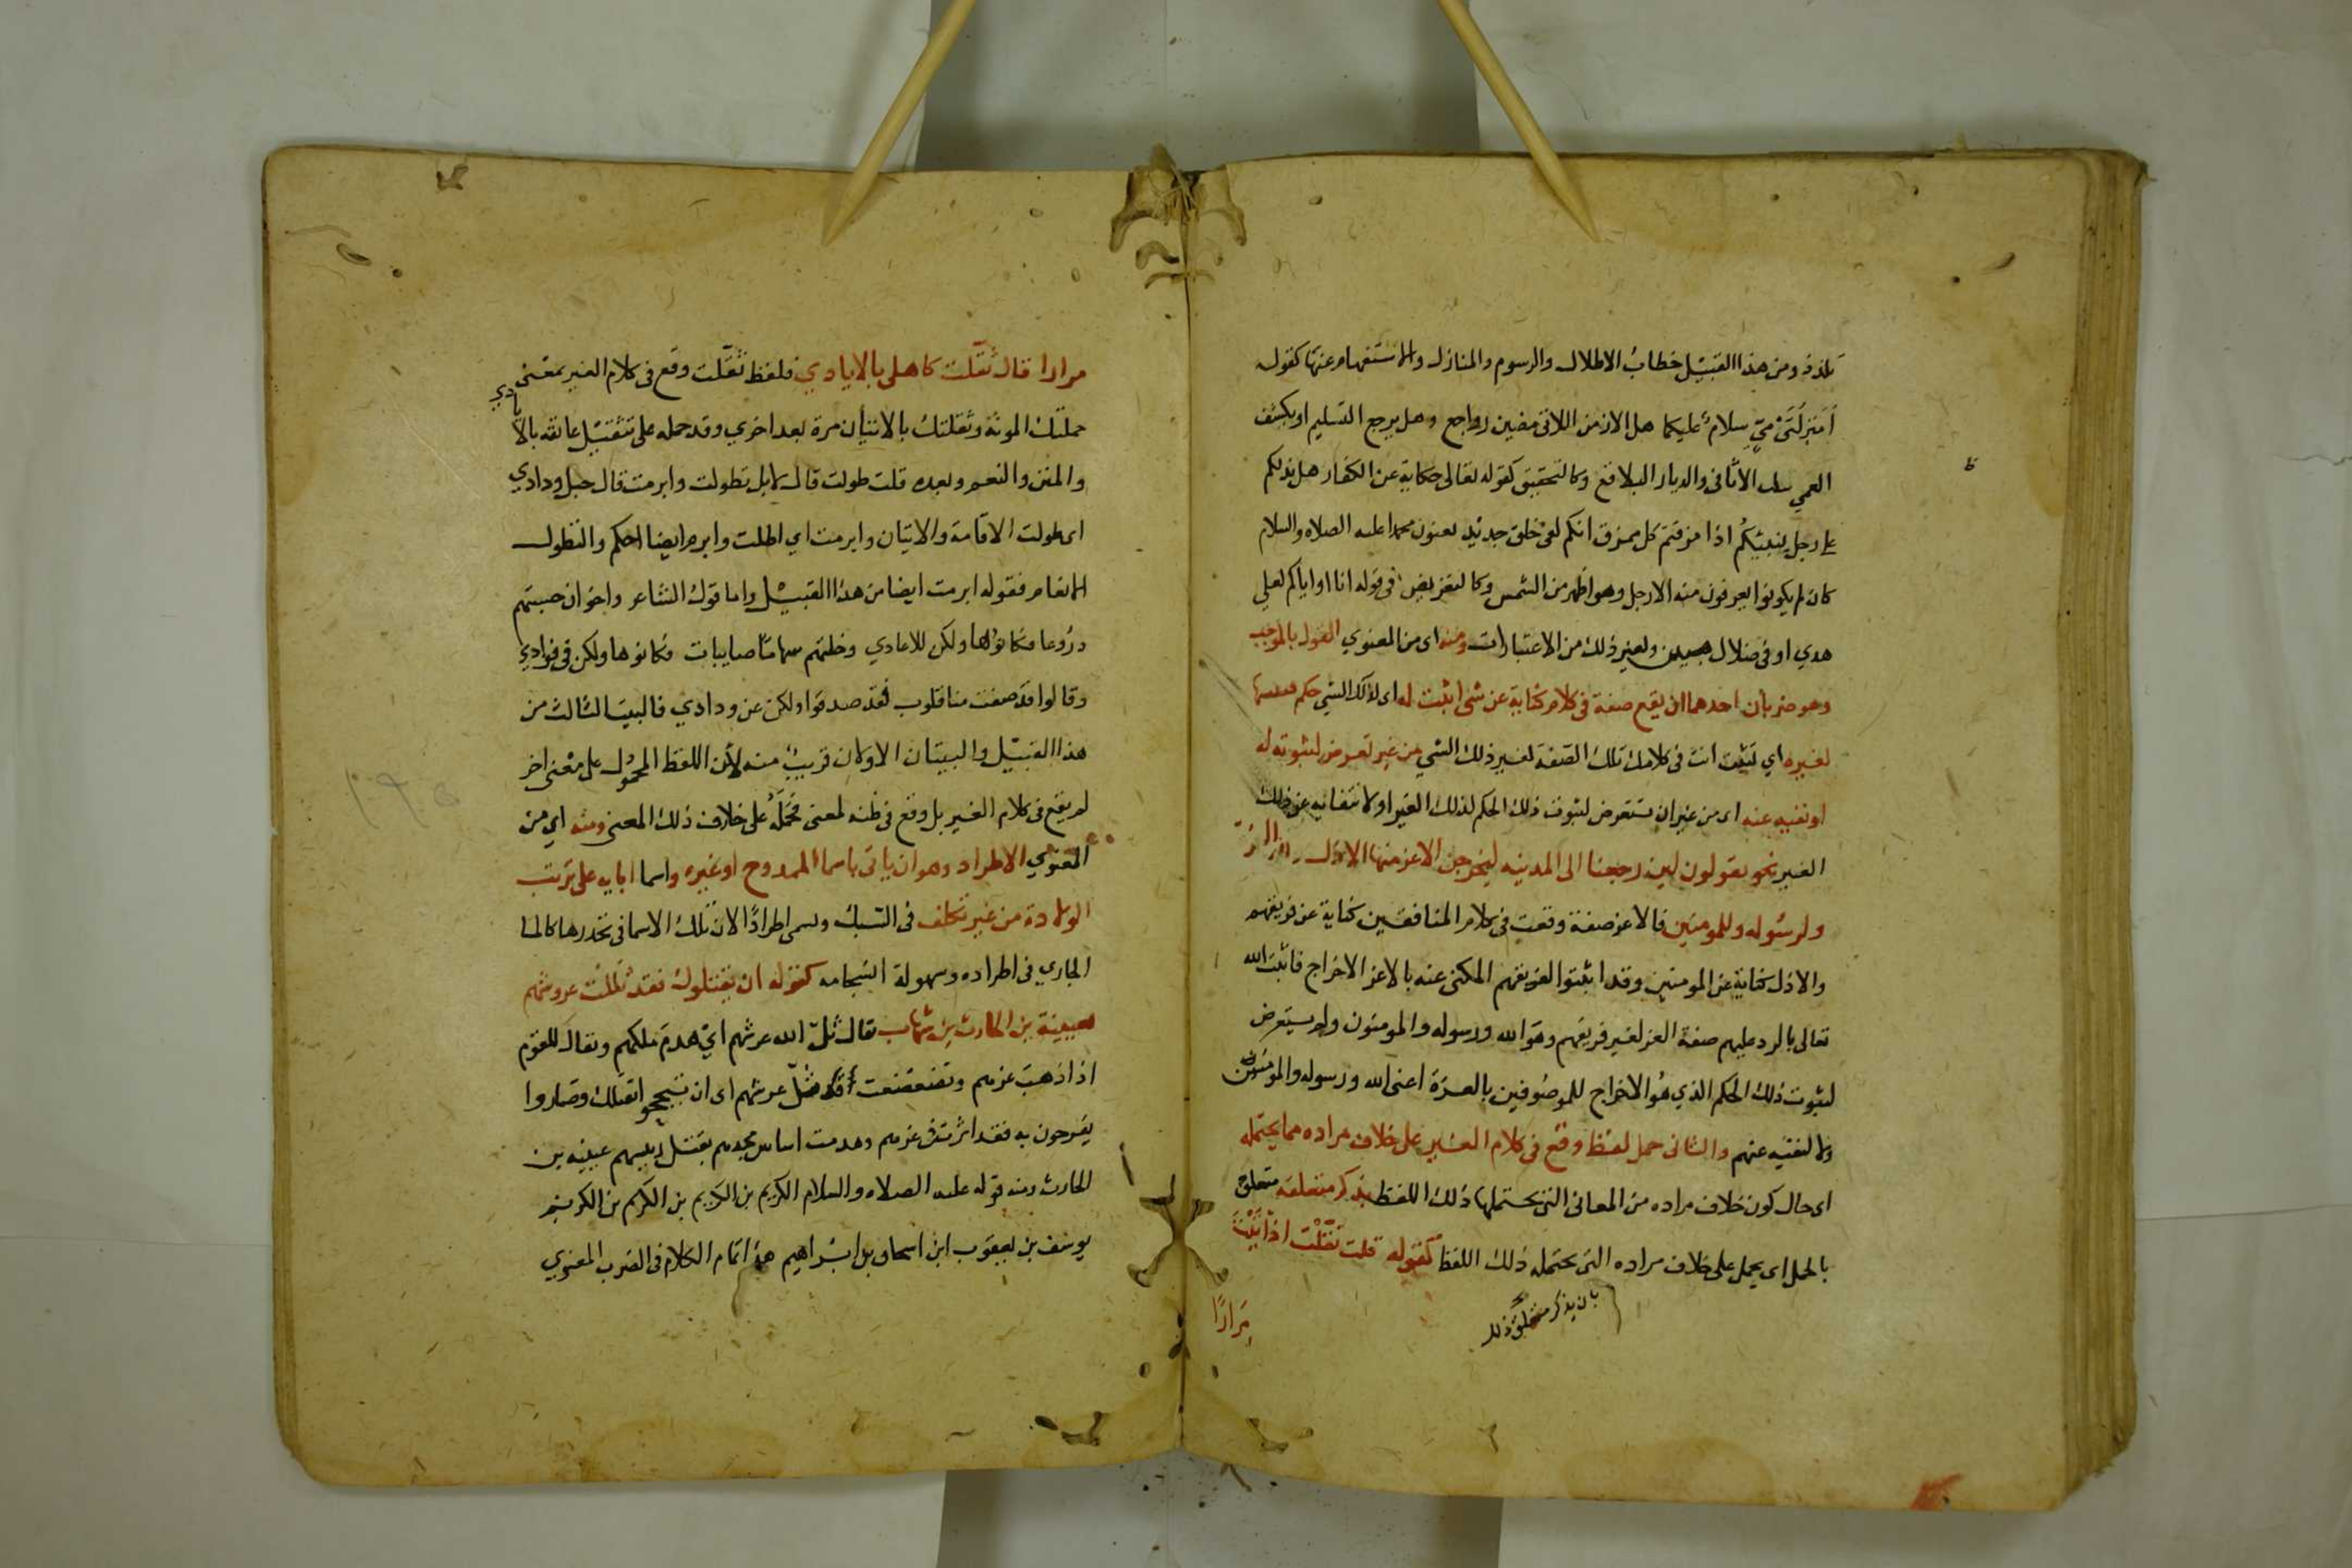 تلذذ ومن هذا القبيل خطاب الاطلال والرسوم والمنازل والاستفهام عنها كقوله
أمنزلتي ميّ سلام عليكما هل الازمن اللاتي مضين رواجع وهل يرجع التسليم او يكشف
العمي ثلث الاثافي والديار البلاقع وكالتحقيق كقوله تعالى حكاية عن الكفار هل ندلكم
على رجل ينبئكم اذا مزقتم كل ممزق انكم لفي خلق جديد يعنون محمدا عليه الصلاه والسلام
كان لم يكونوا يعرفون منه الا رجل وهو اظهر من الشمس وكالتعريض في قوله انا او اياكم لعلي
هدي او في ضلال مبين ولغير ذلك من الاعتبارات ومنه اى من المعنوي القول بالموجب
وهو ضربان احدهما ان يقع صفة في كلام كناية عن شئ اثبت له اى لذلك الشي حكم
لغيره اي تثبت انت في كلامك تلك الصفة لغير ذلك الشي من غير تعرض لثبوته له
او نفيه عنه اى من غير ان تتعرض لثبوت ذلك الحكم لذلك الغير او لانتفائه عن ذلك
الغير نحو يقولون لين رجعنا الى المدينه ليخرجن الاعز منها الاذل ولله العزة
ولرسوله وللمومنين فالاعز صفة وقعت في كلام المنافقين كناية عن فريقهم
والاذل كناية عن المومنين وقد اثبتوا لفريقهم المكنى عنه بالاعز الاخراج فاثبت الله
تعالى بالرد عليهم صفة العز لغير فريقهم وهو الله ورسوله والمومنون ولم يتعرض
لثبوت ذلك الحكم الذي هو الاخراج للموصوفين بالعزة اعنى الله ورسوله والمومنين
ولا لنفيه عنهم والثانى حمل لفظ وقع في كلام الغير على خلاف مراده مما يحتمله
اى حال كون خلاف مراده من المعانى التي يحتملها ذلك اللفظ بذكر متعلقه متعلق
بالحمل اى يحمل على خلاف مراده التى يحتمله ذلك اللفظ كقوله قلت ثقّلت اذ اتيت
بان يذكر متعلق ذلك
مرارًا
مرارا قال ثقّلت كاهلى بالايادي فلفظ ثقّلت وقع في كلام الغير بمعنى
حملتك الموئة وثقلتك بالاتيان مرة بعد اخري وقد حمله على تثقيل عاتقه بالايادي
والمنن والنعم وبعده قلت طولت قال لا بل تطولت وابرمت قال حبل ودادي
اى طولت الاقامة والاتيان وابرمت اي اطلت وابرم ايضا احكم والتطول
الانعام فقوله ابرمت ايضا من هذا القبيل واما قول الشاعر واخوان حسبتهم
دروعا فكانوها ولكن للاعادي وخلتهم سهاما صايبات فكانوها ولكن في فوادي
وقالوا قد صفت منا قلوب لقد صدقوا ولكن عن ودادي فالبيت الثالث من
هذا القبيل والبيتان الاولان قريب منه لأن اللفظ المحمول على معنى اخر
لم يقع في كلام الغير بل وقع في ظنه لمعنى فحمله على خلاف ذلك المعنى ومنه اي من
المعنوي الاطراد وهو ان ياتى باسما الممدوح او غيره واسما ابايه على ترتيب
الولادة من غير تكلف في السبك ويسمى اطرادًا لان تلك الاسما في تحدرها كالما
الجاري في اطراده وسهولة انسجامه كقوله ان يقتلوك فقد ثللت عروشهم
بعيينة بن الحارث بن شهاب يقال ثلّ الله عرشهم اي هدم ملكهم ويقال للقوم
اذا ذهب عزهم وتضعضعت قد ثلّ عرشهم اى ان تبجحوا بقتلك وصاروا
يفرحون به فقد اثرت في عزهم وهدمت اساس مجدهم بقتل رييسهم عيينه بن
الحارث ومنه قوله عليه الصلاه والسلام الكريم بن الكريم بن الكريم بن الكريم
يوسف بن يعقوب ابن اسحاق بن ابراهيم هذا تمام الكلام في الضرب المعنوي